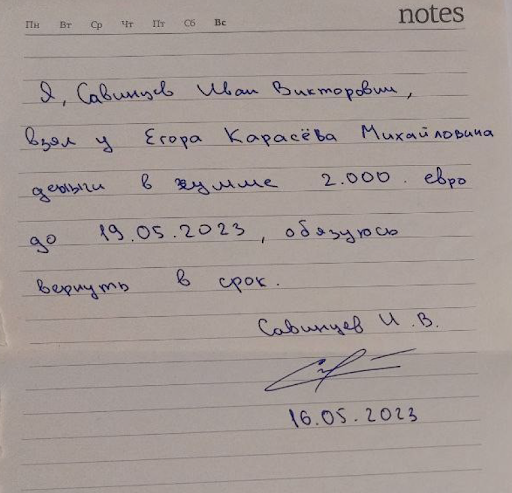 notes
Пн Вт Ср Чт Пт Сб Вс
Я, Савинцев Иван Викторович,
взял у Егора Карасёва Михайловича
деньги в сумме 2.000. евро
до 19.05.2023, обязуюсь
вернуть в срок.
Савинцев И.В.
16.05.2023